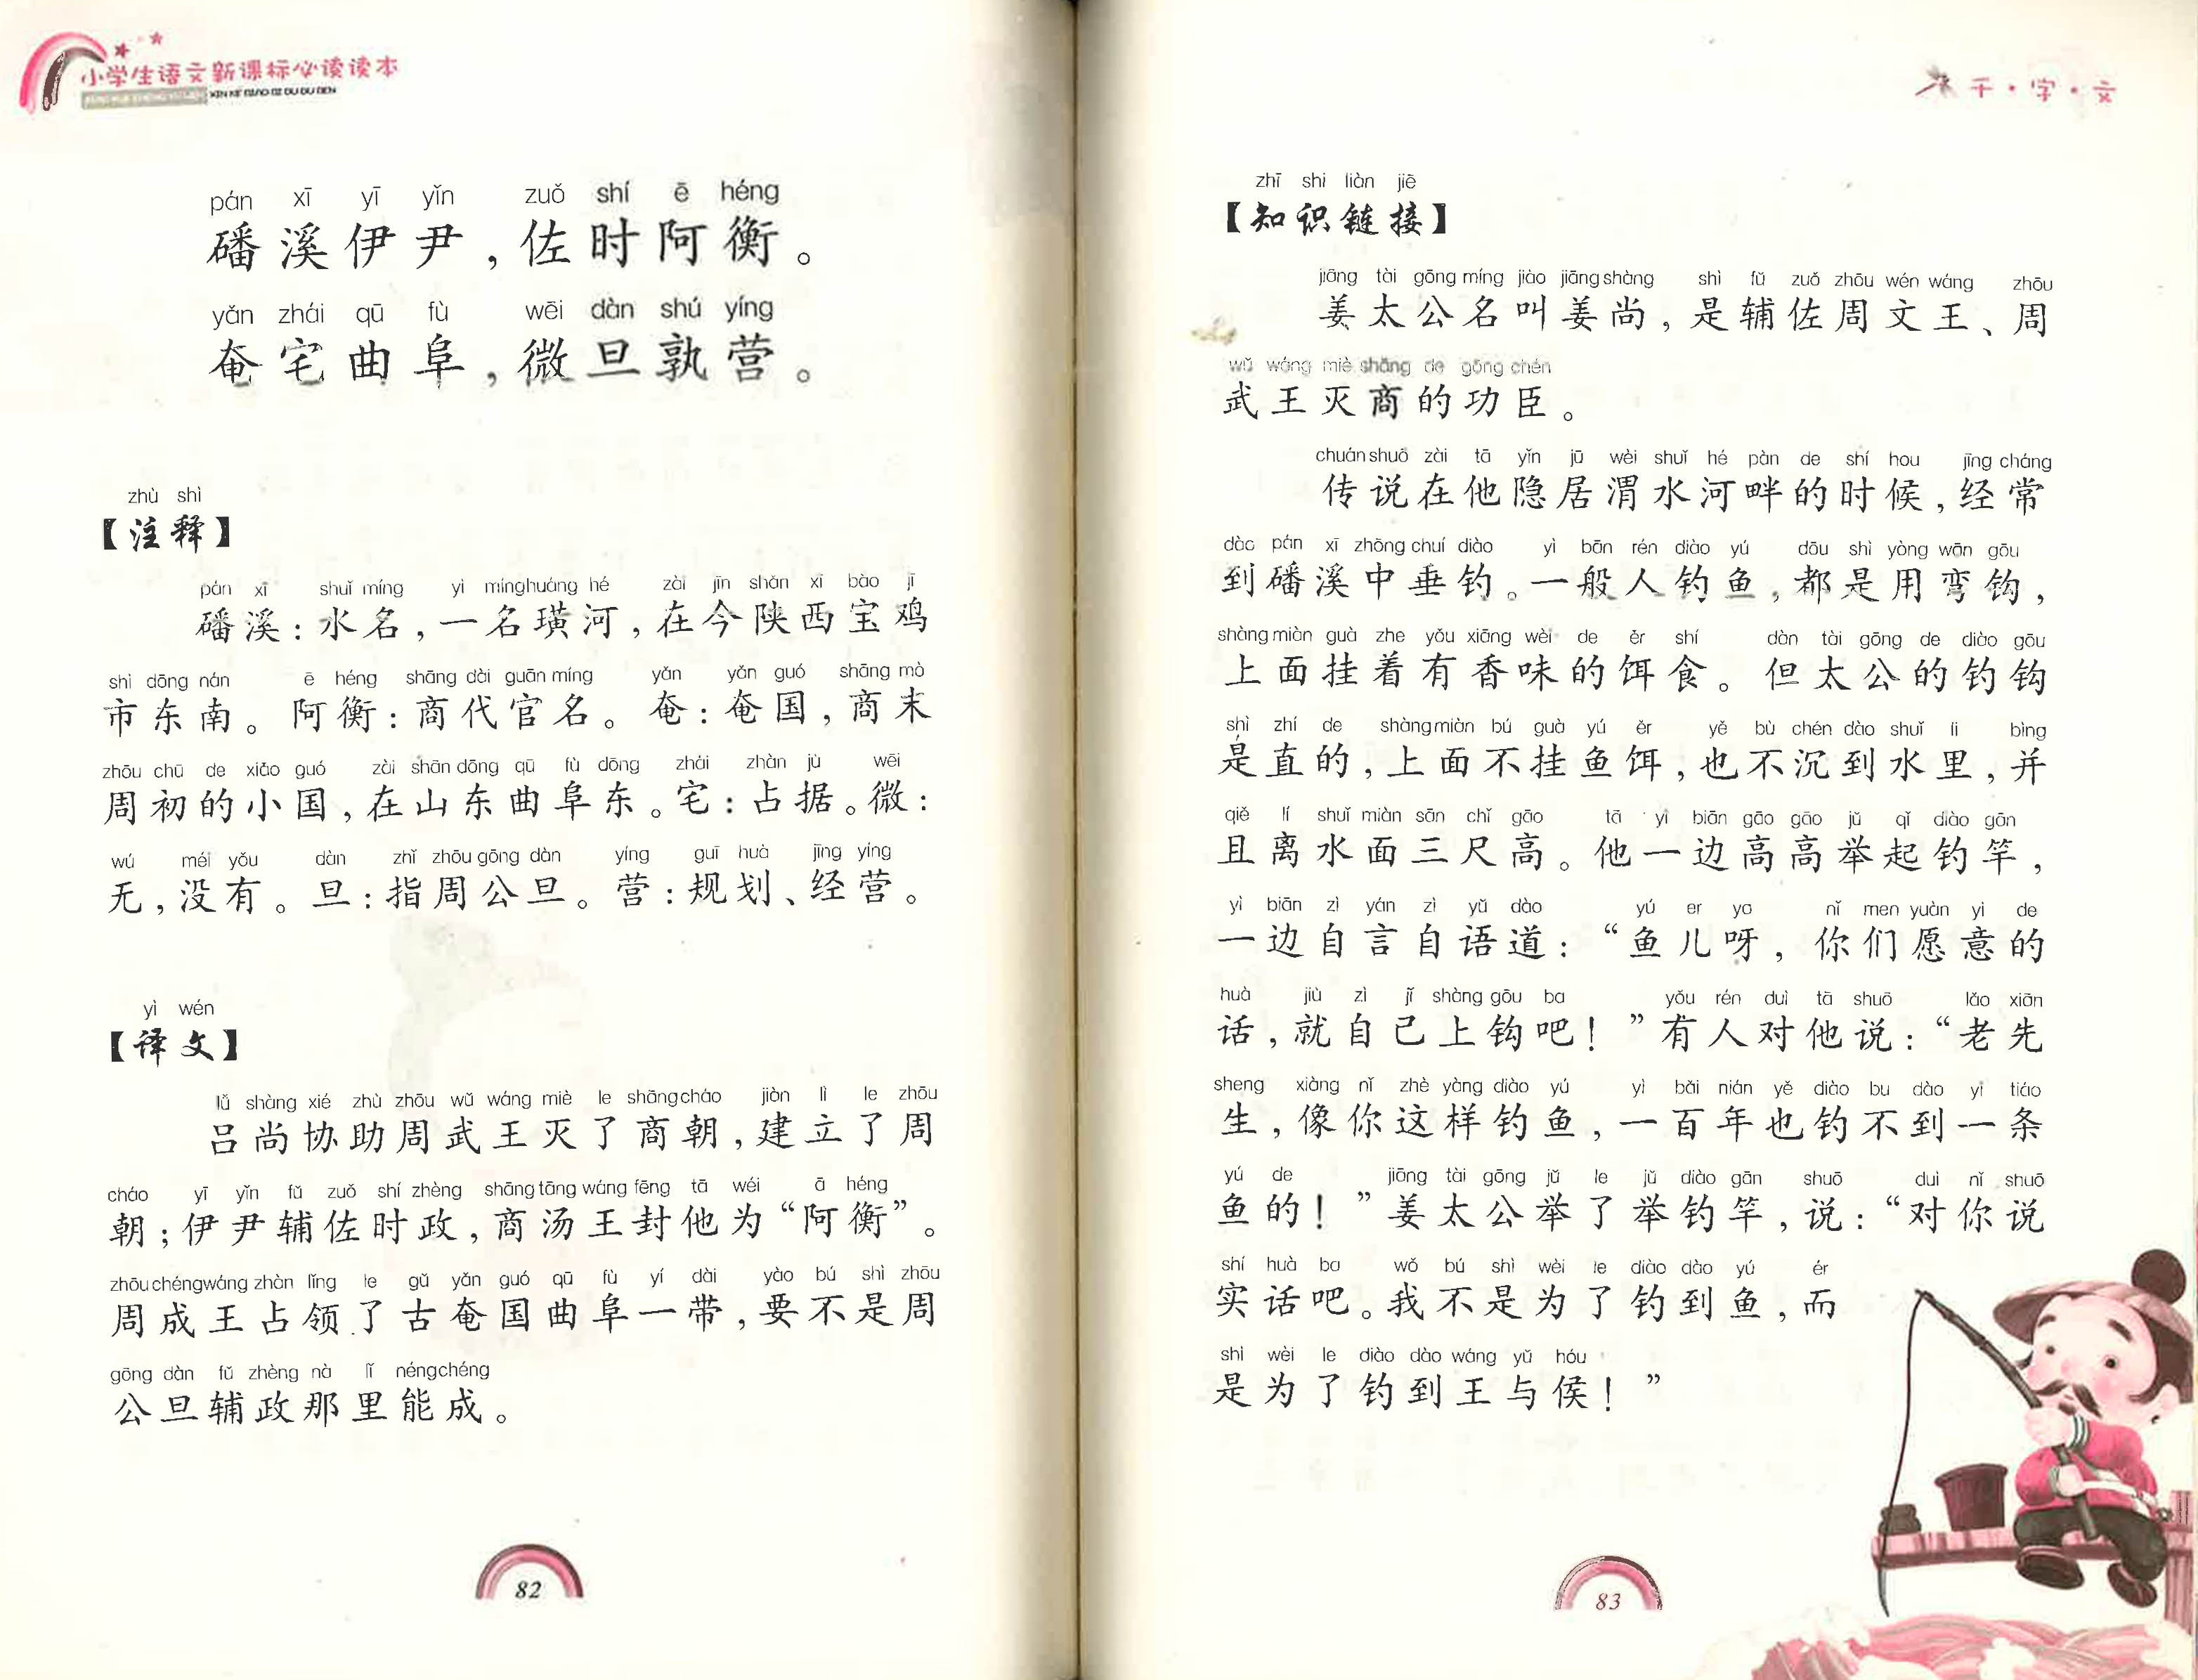 小学生语文新课标必读读本
pán xī yī yǐn zuǒ shí ē héng
磻溪伊尹，佐时阿衡。
yǎn zhái qū fù wēi dàn shú yíng
奄宅曲阜，微旦孰营。
zhù shì
【注释】
pán xī shuǐ míng yì mínghuáng hé zài jīn shǎn xī bǎo jī
磻溪：水名，一名璜河，在今陕西宝鸡
shì dōng nán ē héng shāng dài guān míng yǎn yǎn guó shāng mò
市东南。阿衡：商代官名。奄：奄国，商末
zhōu chū de xiǎo guó zài shān dōng qū fù dōng zhái zhàn jù wēi
周初的小国，在山东曲阜东。宅：占据。微：
wú méi yǒu dàn zhǐ zhōu gōng dàn yíng guī huà jīng yíng
无，没有。旦：指周公旦。营：规划、经营。
yì wén
【译文】
lǚ shàng xié zhù zhōu wǔ wáng miè le shāng cháo jiàn lì le zhōu
吕尚协助周武王灭了商朝，建立了周
cháo yī yǐn fǔ zuǒ shí zhèng shāng tāng wáng fēng tā wéi ā héng
朝；伊尹辅佐时政，商汤王封他为“阿衡”。
zhōu chéngwáng zhàn lǐng le gǔ yǎn guó qū fù yí dài yào bú shì zhōu
周成王占领了古奄国曲阜一带，要不是周
gōng dàn fǔ zhèng nà lǐ néngchéng
公旦辅政那里能成。
82
千·字·文
zhī shi liàn jiē
【知识链接】
jiāng tài gōng míng jiào jiāng shàng shì fǔ zuǒ zhōu wén wáng zhōu
姜太公名叫姜尚，是辅佐周文王、周
wǔ wáng miè shāng de gōng chén
武王灭商的功臣。
chuán shuō zài tā yǐn jū wèi shuǐ hé pàn de shí hou jīng cháng
传说在他隐居渭水河畔的时候，经常
dào pán xī zhōng chuí diào yì bān rén diào yú dōu shì yòng wān gōu
到磻溪中垂钓。一般人钓鱼，都是用弯钩，
shàng miàn guà zhe yǒu xiāng wèi de ěr shí dàn tài gōng de diào gōu
上面挂着有香味的饵食。但太公的钓钩
shì zhí de shàng miàn bú guà yú ěr yě bù chén dào shuǐ lǐ bìng
是直的，上面不挂鱼饵，也不沉到水里，并
qiě lí shuǐ miàn sān chǐ gāo tā yì biān gāo gāo jǔ qǐ diào gān
且离水面三尺高。他一边高高举起钓竿，
yì biān zì yán zì yǔ dào yú er ya nǐ men yuàn yì de
一边自言自语道：“鱼儿呀，你们愿意的
huà jiù zì jǐ shàng gōu ba yǒu rén duì tā shuō lǎo xiān
话，就自己上钩吧！”有人对他说：“老先
sheng xiàng nǐ zhè yàng diào yú yì bǎi nián yě diào bu dào yì tiáo
生，像你这样钓鱼，一百年也钓不到一条
yú de jiāng tài gōng jǔ le jǔ diào gān shuō duì nǐ shuō
鱼的！”姜太公举了举钓竿，说：“对你说
shí huà ba wǒ bú shì wèi le diào dào yú ér
实话吧。我不是为了钓到鱼，而
shì wèi le diào dào wáng yǔ hóu
是为了钓到王与侯！”
83